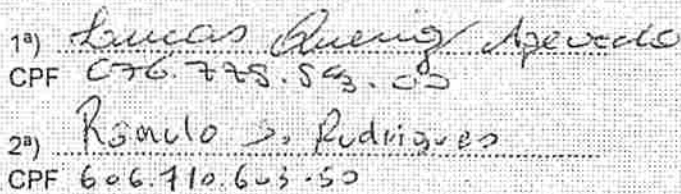 1ª) Lucas Queiroz Azevedo
CPF
2ª) Romulo S. Rodrigues
CPF 606.710.603-50